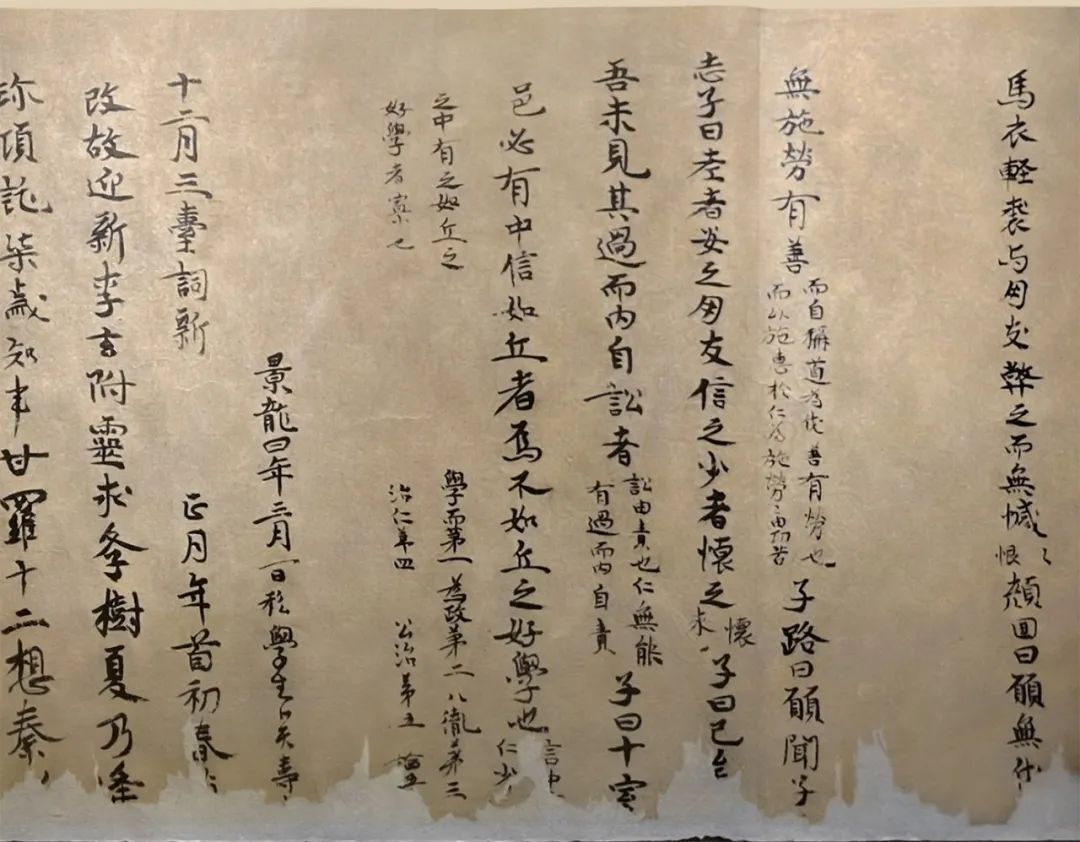 馬衣軽裘与朋友弊之而無憾〻
恨
顔囬曰願無伐
無施勞有善
而自稱道為伐善有勞也
而以施惠於仁為施勞
子路曰願聞子
志子曰老者安之朋友信之少者懷之
懷
来
子曰已
吾未見其過而内自訟者
訟由責也仁無能
有過而内自責
子曰十室
邑必有中信如丘者焉不如丘之好學也
言中
仁少
之中有之如丘之
好學者寡也
學而第一為政第二八佾第三
治仁第四 公冶第五
景龍四年三月一日私學生卜天壽
十二月三臺詞新 正月年首初春〻
改故迎新李玄附靈求學樹夏乃逢
珎項託柒歲知事甘羅十二想秦〻